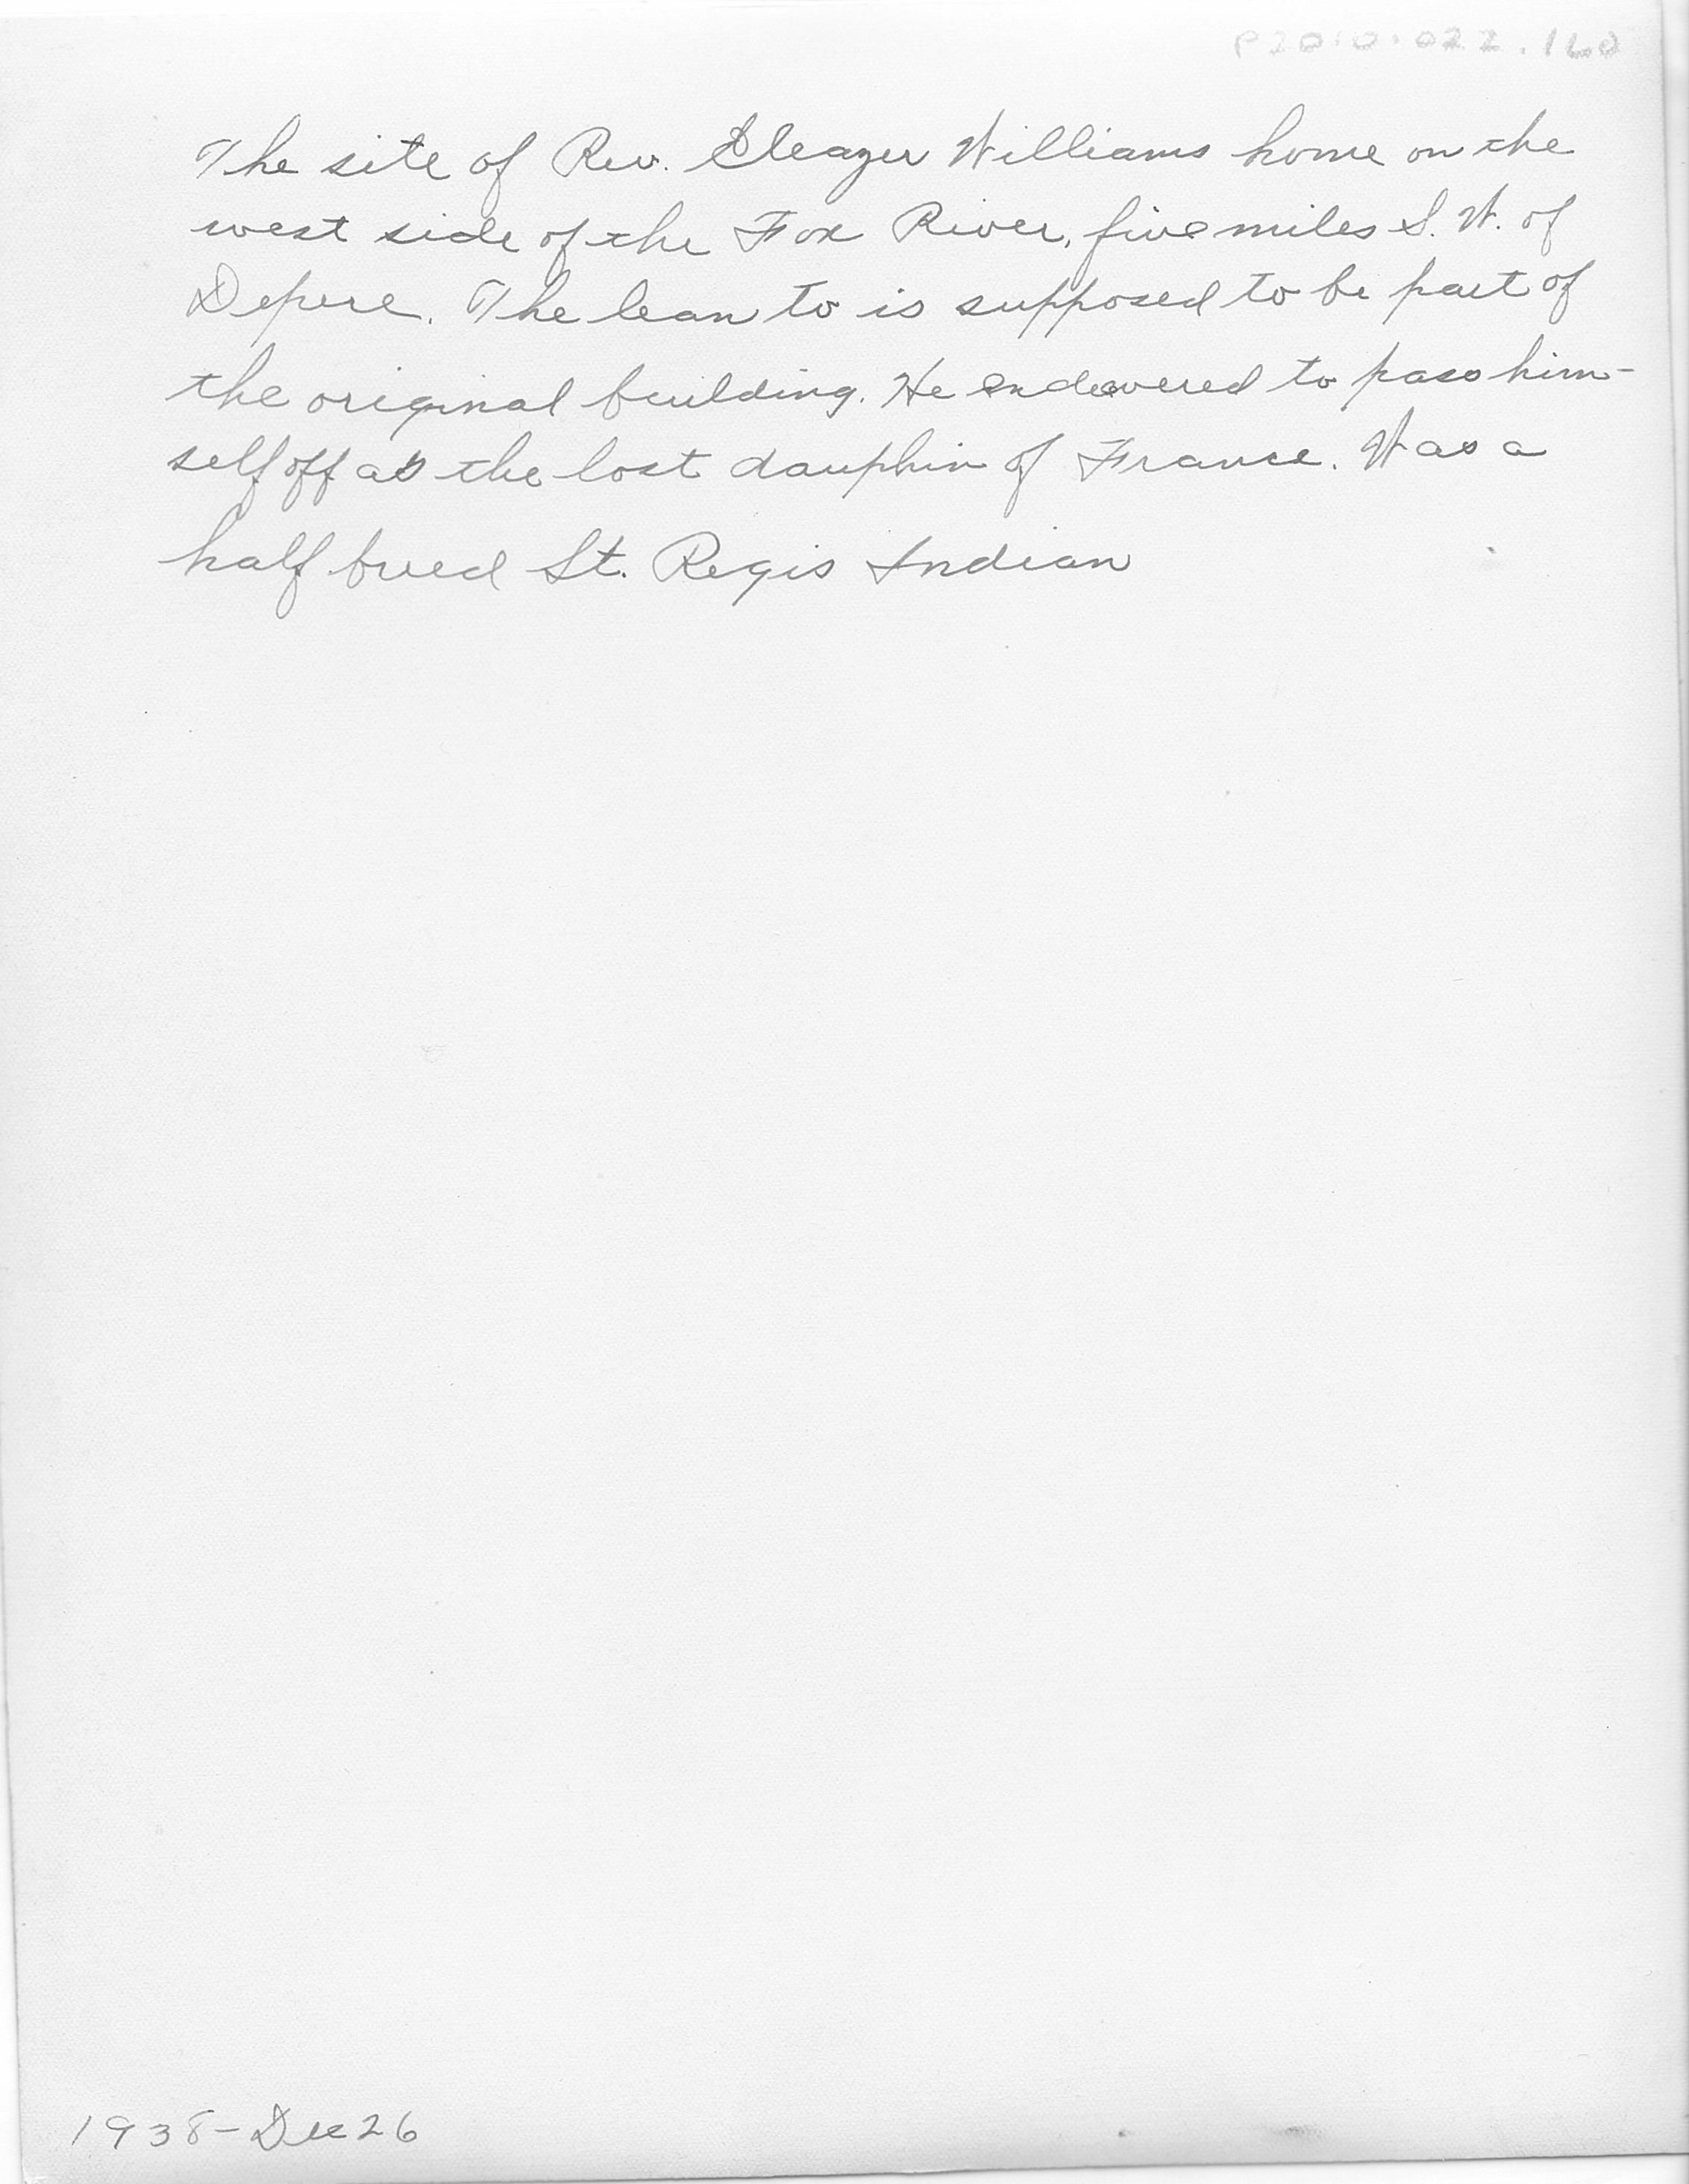 P2010.022.160
The site of Rev. Eleazer Williams home on the
west side of the Fox River, five miles S. W. of
Depere. The lean to is supposed to be part of
the original building. He endeavered to pass him-
self off as the lost dauphin of France. Was a
half breed St. Regis Indian
1938-Dec 26